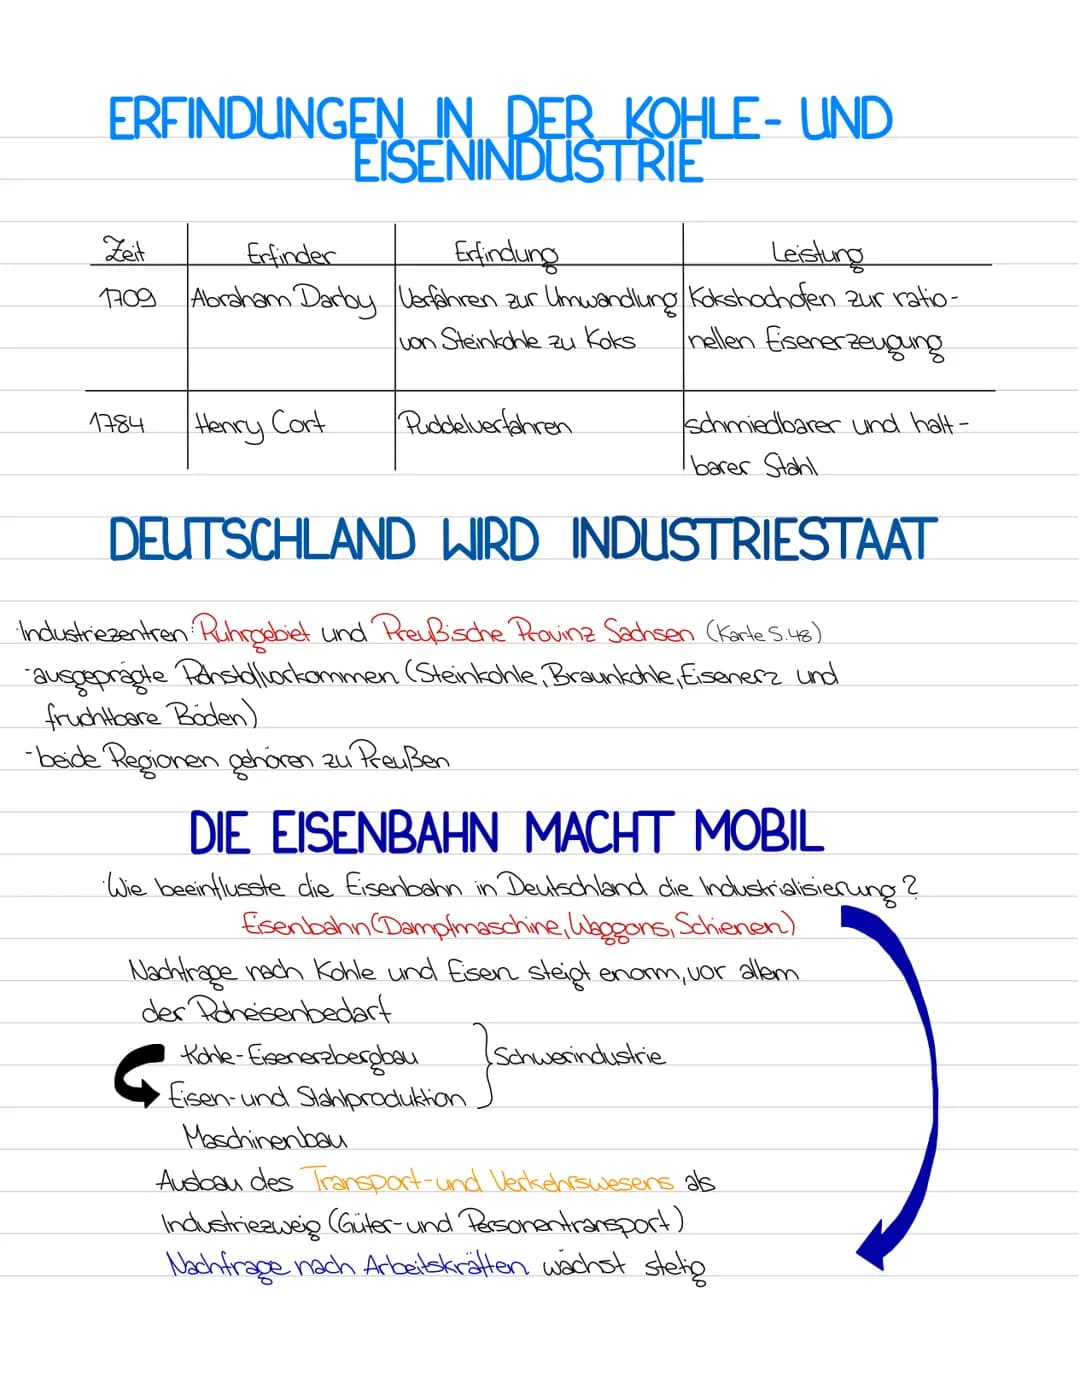 ERFINDUNGEN IN DER KOHLE- UND
EISENINDUSTRIE
Zeit Erfinder Erfindung Leistung
1709 Abraham Darby Verfahren zur Umwandlung Kokshochofen zur ratio-
von Steinkohle zu Koks nellen Eisenerzeugung
1784 Henry Cort Puddelverfahren schmiedbarer und halt-
barer Stahl
DEUTSCHLAND WIRD INDUSTRIESTAAT
Industriezentren: Ruhrgebiet und Preußische Provinz Sachsen (Karte S.48)
-ausgeprägte Rohstoffvorkommen (Steinkohle, Braunkohle, Eisenerz und
fruchtbare Böden)
-beide Regionen gehören zu Preußen
DIE EISENBAHN MACHT MOBIL
Wie beeinflusste die Eisenbahn in Deutschland die Industrialisierung?
Eisenbahn (Dampfmaschine, Waggons, Schienen)
Nachfrage nach Kohle und Eisen steigt enorm, vor allem
der Roheisenbedarf
Kohle-Eisenerzbergbau Schwerindustrie
Eisen- und Stahlproduktion
Maschinenbau
Ausbau des Transport- und Verkehrswesens als
Industriezweig (Güter- und Personentransport)
Nachfrage nach Arbeitskräften wächst stetig